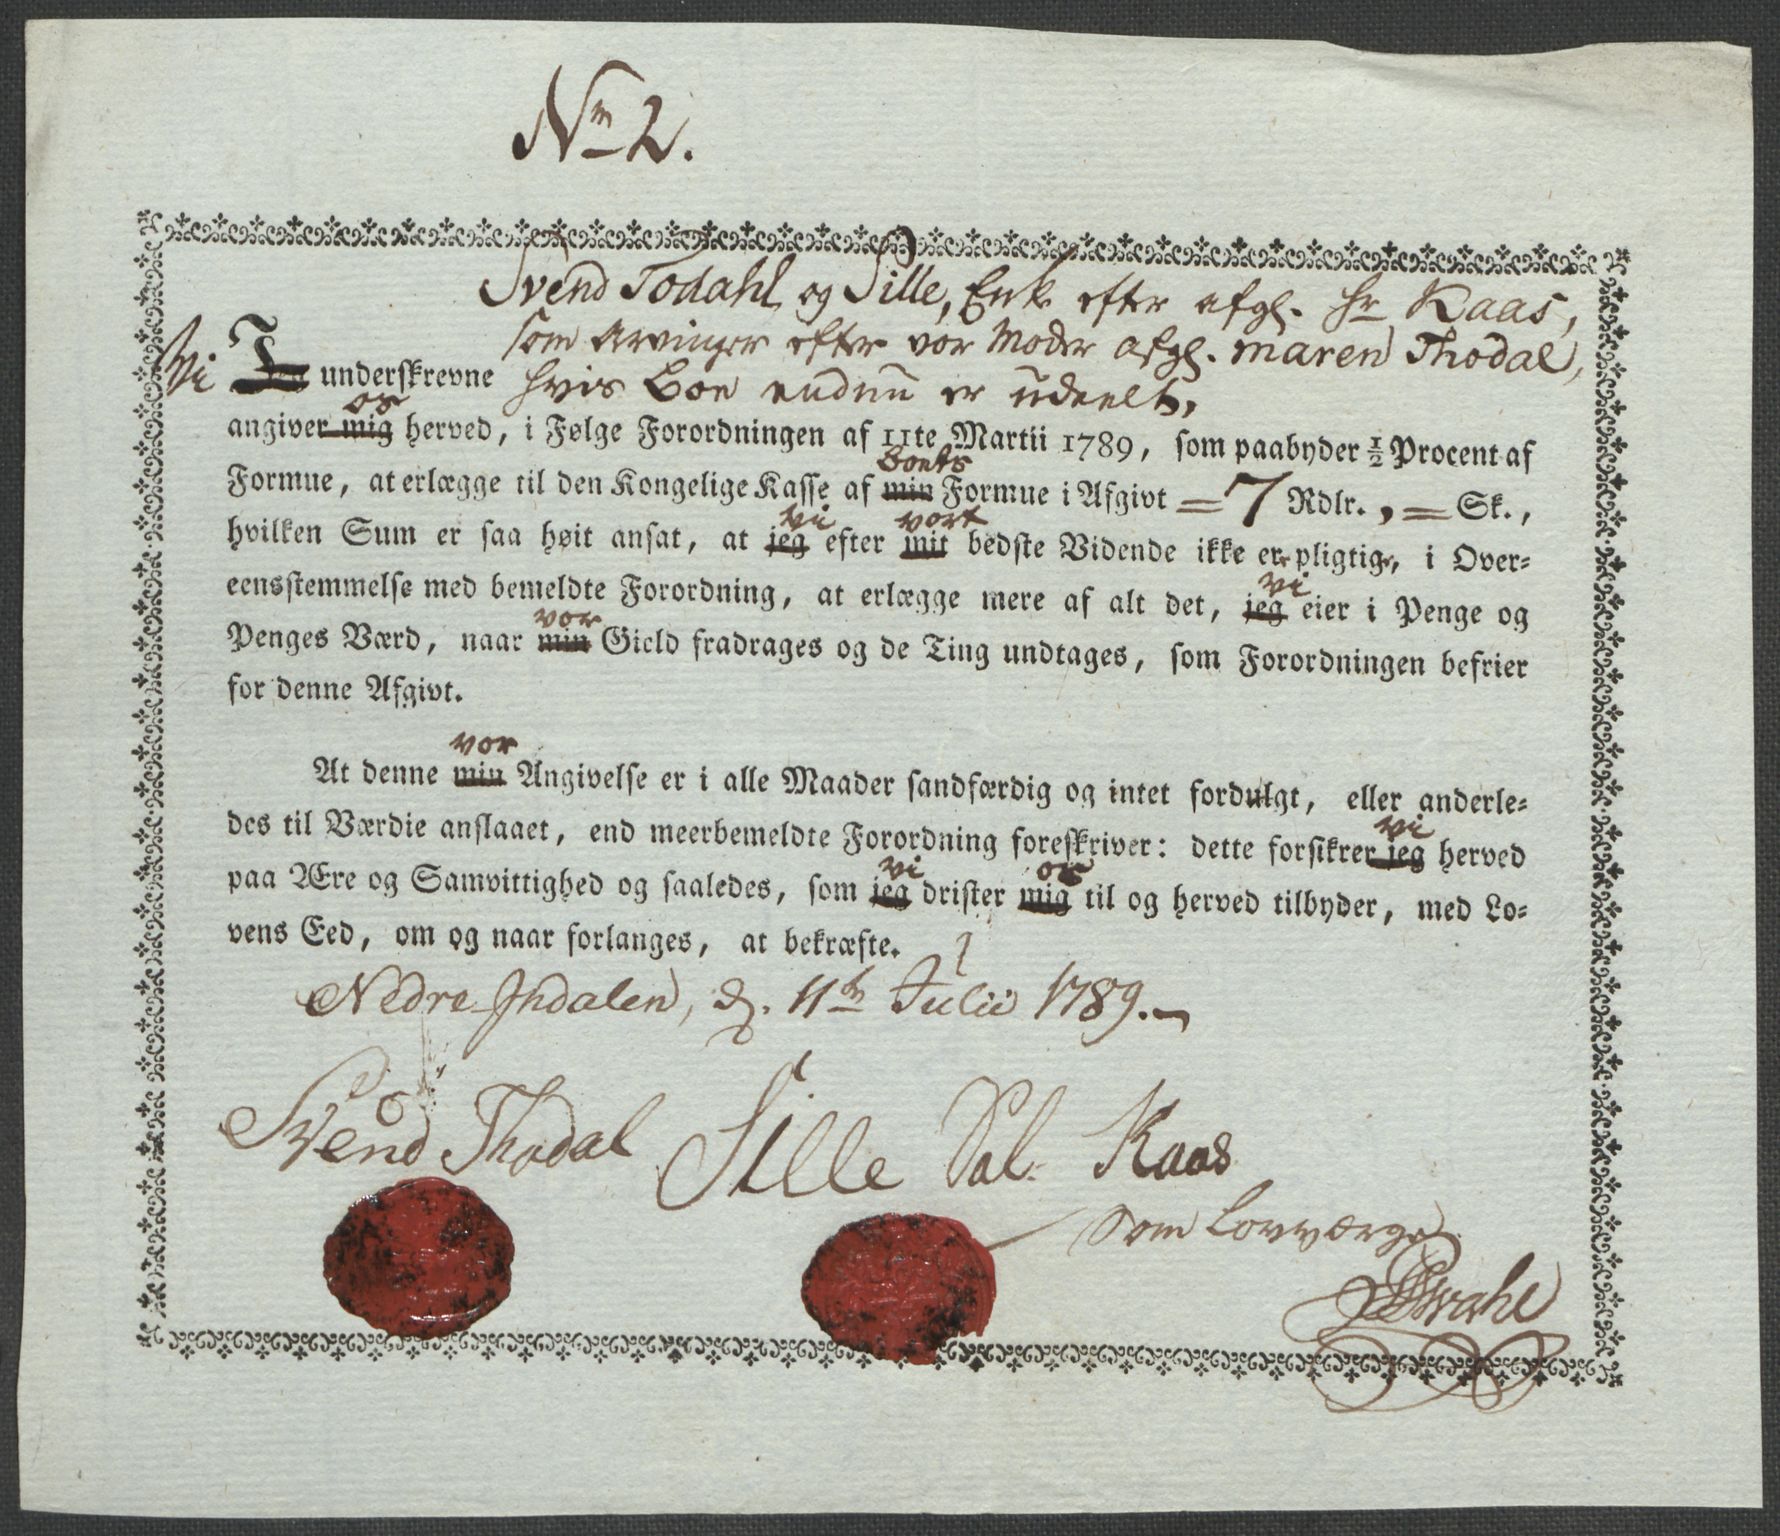 Nm 2.
Svend Todahl og Sille, Enke efter afgl. Hr Kaas,
som Arvinger efter vor Moder afgl. Maren Thodal,
Vi Jeg underskrevne hvis Boe endnu er udeelt,
os
angiver mig herved, i Følge Forordningen af 11te Martii 1789, som paabyder ½ Procent af
Boets
Formue, at erlægge til den Kongelige Kasse af min Formue i Afgivt = 7 Rdlr., = Sk.,
vi vort
hvilken Sum er saa høit ansat, at jeg efter mit bedste Vidende ikke er pligtig, i Over-
vi
eensstemmelse med bemeldte Forordning, at erlægge mere af alt det, jeg eier i Penge og
vor
Penges Værd, naar min Gield fradrages og de Ting undtages, som Forordningen befrier
for denne Afgivt.
vor
At denne min Angivelse er i alle Maader sandfærdig og intet fordulgt, eller anderle-
vi
des til Værdie anslaaet, end meerbemeldte Forordning foreskriver: dette forsikrer jeg herved
vi os
paa Ære og Samvittighed og saaledes, som jeg drister mig til og herved tilbyder, med Lo-
vens Eed, om og naar forlanges, at bekræfte.
Nedre Indalen, d. 11te Julii 1789.
Svend Thodal Sille Sal. Kaas
som Lovværge